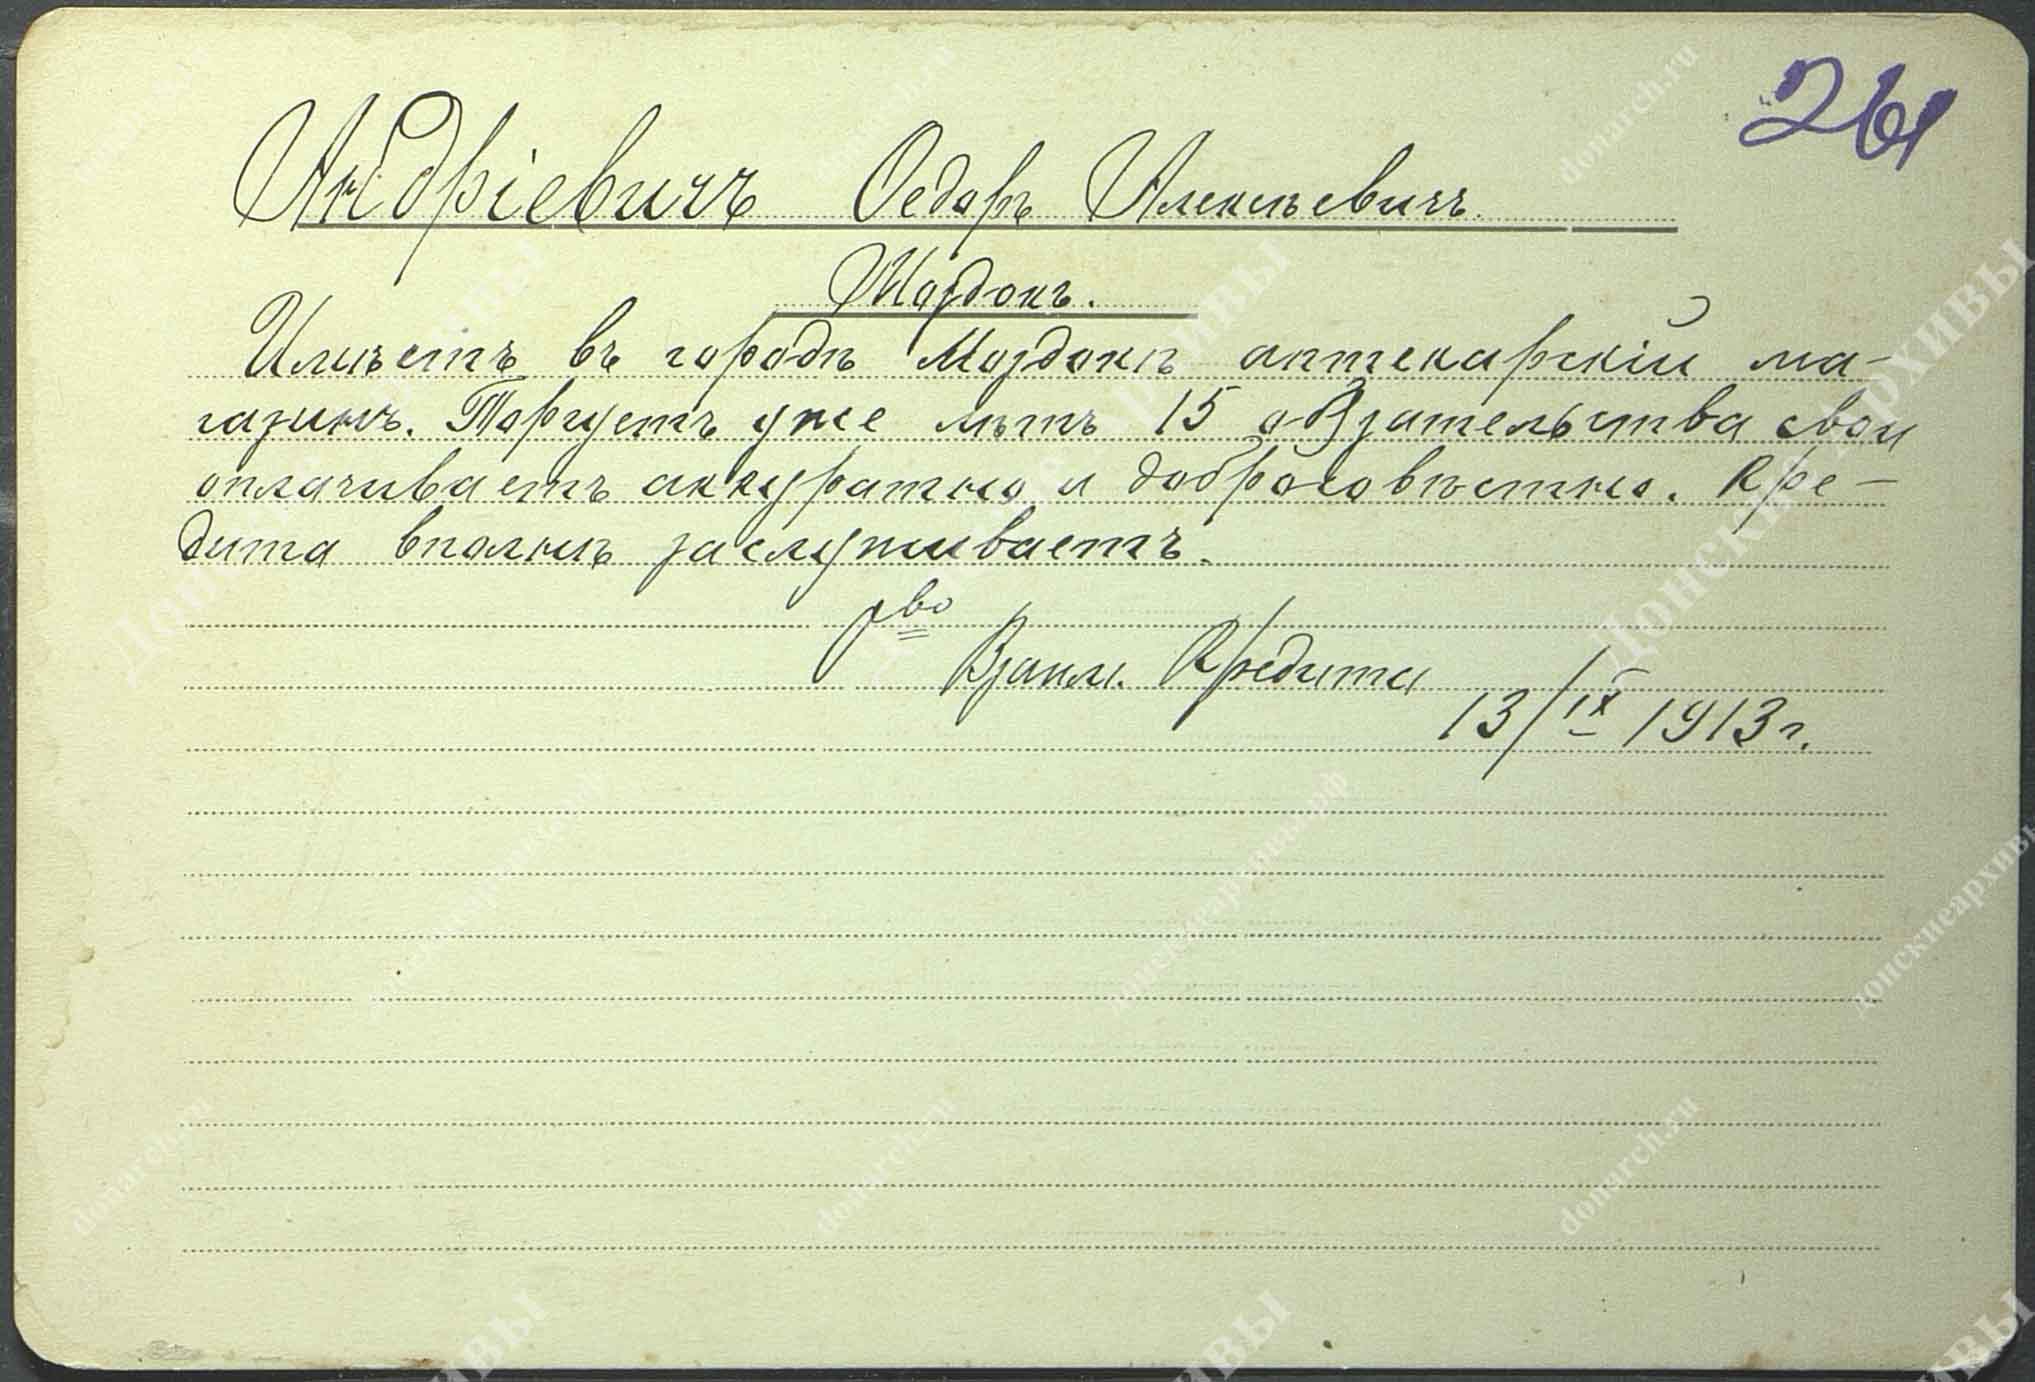 261
Андріевичъ Ѳедоръ Алексѣевичъ.
Моздокъ.
Имѣетъ въ городѣ Моздокѣ аптекарскій ма-
газинъ. Торгуетъ уже лѣтъ 15 обязательства свои
оплачиваетъ аккуратно и добросовѣстно. Кре-
дита вполнѣ заслуживаетъ.
О-во
Взаим. Кредита
13/IX 1913 г.